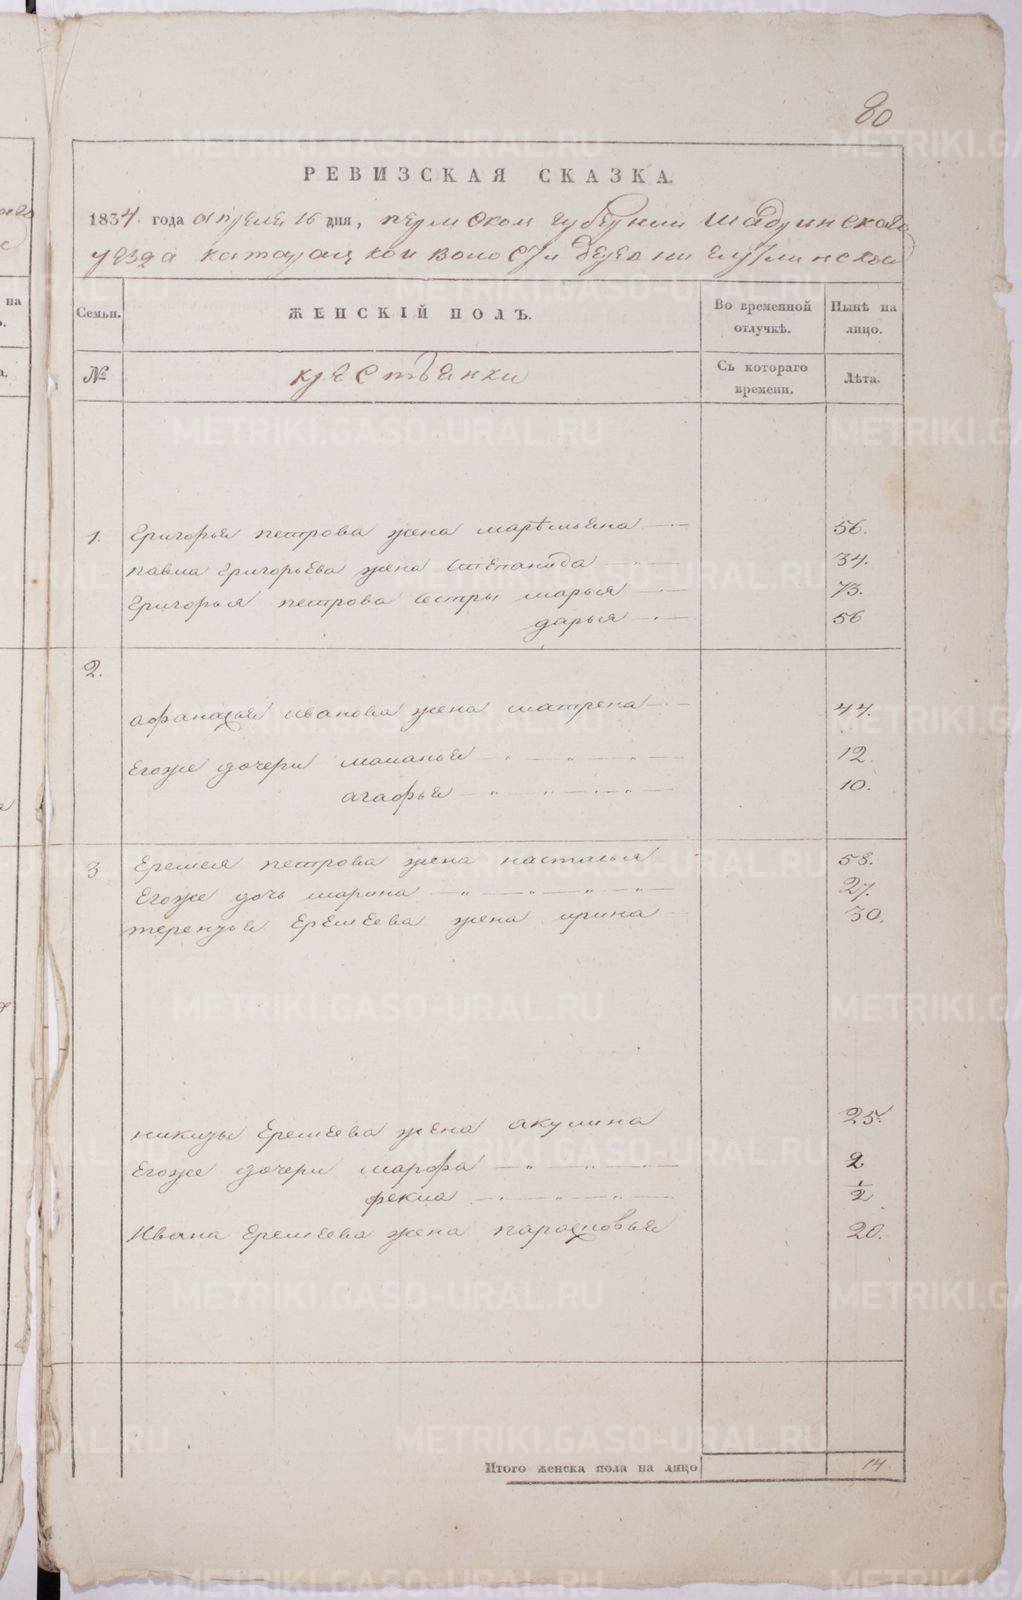 80
РЕВИЗСКАЯ СКАЗКА.
1834. года апреля 16 дня, пермской губернии шадринскаго
уезда катайской волости деревни
Семьи. ЖЕНСКІЙ ПОЛЪ. Во временной отлучкѣ. Нынѣ на лицо.
№ крестьянки Съ котораго времени. Лѣта.
1. Григорья петрова жена 56.
павла Григорьева жена Степанида 34.
Григорья петрова сестры марья 73.
дарья 56
2.
афанасья иванова жена матрена 44.
Егоже дочери маланья 12.
агафья 10.
3 Еремея петрова жена насталья 58.
Егоже дочь марина 27.
терентья Еремеева жена ирина 30.
никиты Еремеева жена акулина 25.
Егоже дочери марфа 2
фекла 1/2
Ивана Еремеева жена парасковья 20.
Итого женска пола на лицо 14.
METRIKI.GASO-URAL.RU